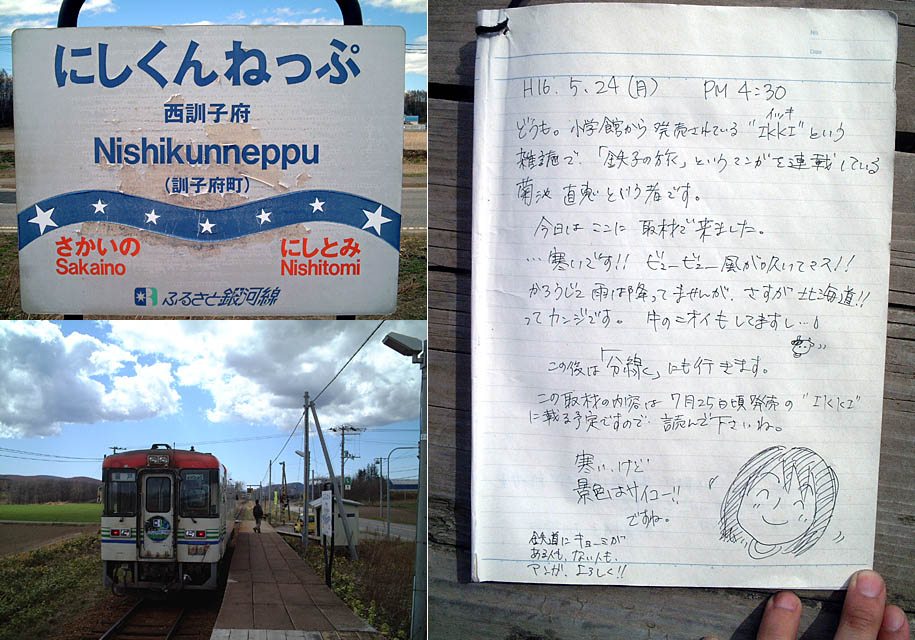 にしくんねっぷ
西訓子府
Nishikunneppu
(訓子府町)
さかいの
Sakaino
にしとみ
Nishitomi
ふるさと銀河線
No.
Date
H16.5.24(月) PM 4:30
イッキ
どうも。小学館から発売されている"IKKI"という
雑誌で、「鉄子の旅」というマンガを連載している
菊池 直恵という者です。
今日はここに取材で来ました。
…寒いです!! ビュービュー風が吹いてマス!!
かろうじて雨は降ってませんが、さすが北海道!!
ってカンジです。 牛のニオイもしてますし…♪
この後は「分線」にも行きます。
この取材の内容は7月25日頃発売の"IKKI"
に載る予定ですので、読んで下さいね。
寒い、けど
景色はサイコー!!
ですね。
鉄道にキョーミが
ある人も、ない人も、
マンガ、よろしく!!